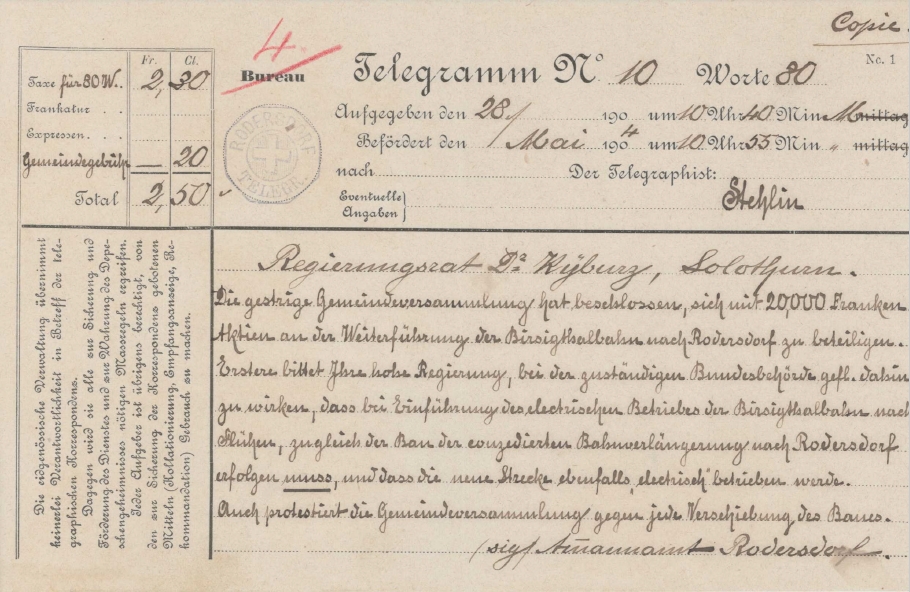 Copie.
4
Fr. Ct.
Taxe für 80 W. 2,30
Frankatur . .
Expressen . . .
Gemeindegebühr — 20
Total 2,50
Bureau
RODERSDORF
TELEGR.
Telegramm No 10 Worte 80
No. 1
Aufgegeben den 28/ 190 um 10 Uhr 40 Min. Mittag
Befördert den Mai 1904 um 10 Uhr 55 Min. " mittag
nach Der Telegraphist:
Eventuelle Angaben
Stehlin
Die eidgenössische Verwaltung übernimmt
keinerlei Verantwortlichkeit in Betreff der tele-
graphischen Korrespondenz.
Dagegen wird sie alle zur Sicherung und
Förderung des Dienstes und zur Wahrung des Depe-
schengeheimnisses nötigen Massregeln ergreifen.
Jeder Aufgeber ist übrigens berechtigt, von
den zur Sicherung der Korrespondenz gebotenen
Mitteln (Kollationierung, Empfangsanzeige, Re-
kommandation) Gebrauch zu machen.
Regierungsrat Dr Kÿburz, Solothurn.
Die gestrige Gemeindeversammlung hat beschlossen, sich mit 20,000 Franken
Aktien an der Weiterführung der Birsigthalbahn nach Rodersdorf zu beteiligen.
Erstere bittet Ihre hohe Regierung, bei der zuständigen Bundesbehörde gefl. dahin
zu wirken, dass bei Einführung des electrischen Betriebes der Birsigthalbahn nach
Flühen, zugleich der Bau der conzedierten Bahnverlängerung nach Rodersdorf
erfolgen muss, und dass die neue Strecke ebenfalls „electrisch" betrieben werde.
Auch protestiert die Gemeindeversammlung gegen jede Verschiebung des Baues.
(sig) Amannamt Rodersdorf.